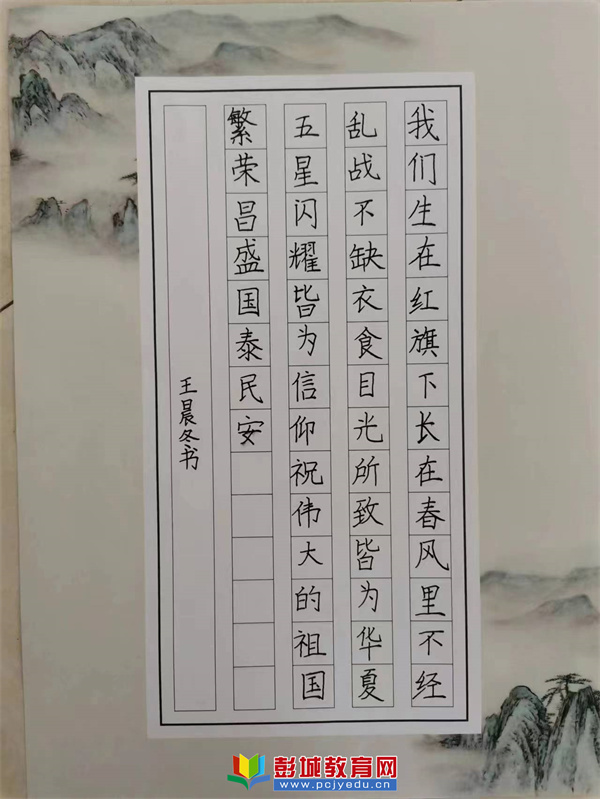 我们生在红旗下长在春风里不经
乱战不缺衣食目光所致皆为华夏
五星闪耀皆为信仰祝伟大的祖国
繁荣昌盛国泰民安
王晨冬书
彭城教育网
www.pcjyedu.cn